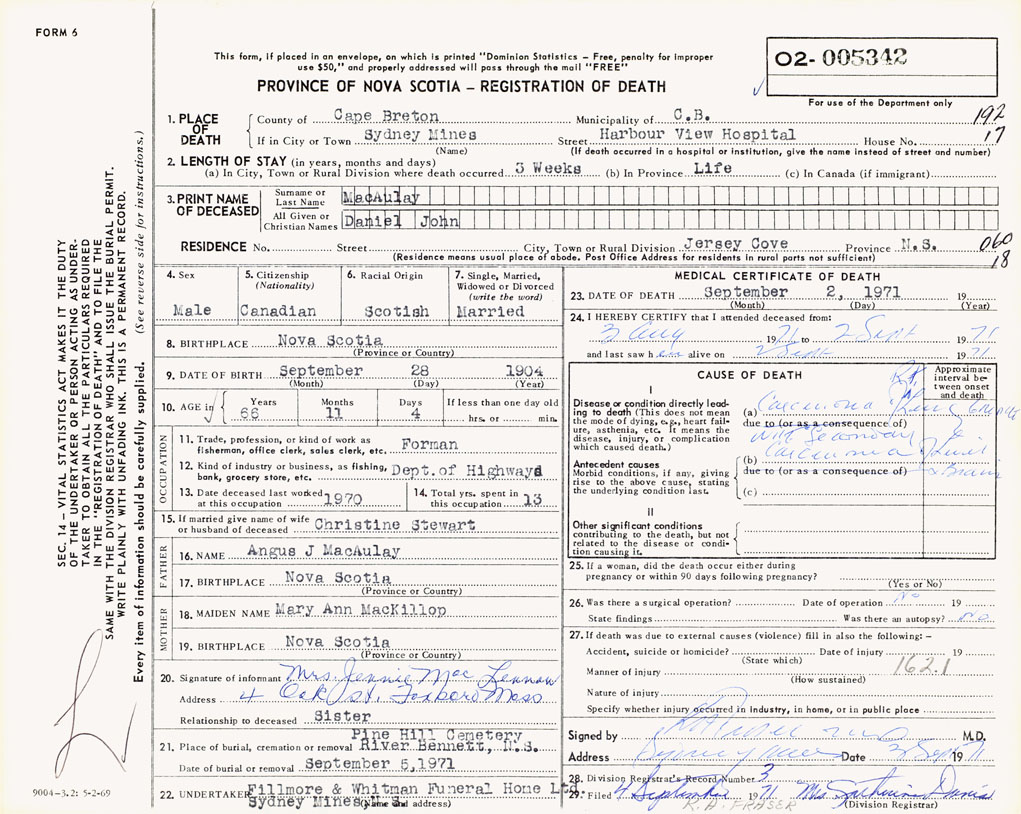 FORM 6
This form, if placed in an envelope, on which is printed "Dominion Statistics – Free, penalty for improper
use $50," and properly addressed will pass through the mail "FREE"
O2- 005342
PROVINCE OF NOVA SCOTIA – REGISTRATION OF DEATH
For use of the Department only
1. PLACE OF DEATH
County of Cape Breton Municipality of C.B. 192
If in City or Town Sydney Mines Street Harbour View Hospital House No. 17
(Name) (If death occurred in a hospital or institution, give the name instead of street and number)
2. LENGTH OF STAY (in years, months and days)
(a) In City, Town or Rural Division where death occurred 3 Weeks (b) In Province Life (c) In Canada (if immigrant)
3. PRINT NAME OF DECEASED
Surname or Last Name MacAulay
All Given or Christian Names Daniel John
RESIDENCE No. Street City, Town or Rural Division Jersey Cove Province N.S. 060
(Residence means usual place of abode. Post Office Address for residents in rural parts not sufficient) 18
4. Sex
Male
5. Citizenship
(Nationality)
Canadian
6. Racial Origin
Scotish
7. Single, Married,
Widowed or Divorced
(write the word)
Married
8. BIRTHPLACE Nova Scotia
(Province or Country)
9. DATE OF BIRTH September 28 1904
(Month) (Day) (Year)
10. AGE in Years Months Days If less than one day old
66 11 4 hrs. or min.
OCCUPATION
11. Trade, profession, or kind of work as
fisherman, office clerk, sales clerk, etc. Forman
12. Kind of industry or business, as fishing,
bank, grocery store, etc. Dept.of Highways
13. Date deceased last worked
at this occupation 1970
14. Total yrs. spent in
this occupation 13
15. If married give name of wife
or husband of deceased Christine Stewart
FATHER
16. NAME Angus J MacAulay
17. BIRTHPLACE Nova Scotia
(Province or Country)
MOTHER
18. MAIDEN NAME Mary Ann MacKillop
19. BIRTHPLACE Nova Scotia
(Province or Country)
20. Signature of informant Mrs. Jennie Mac Lennan
Address 4 Oak St. Foxboro Mass
Relationship to deceased Sister
Pine Hill Cemetery
21. Place of burial, cremation or removal River Bennett, N.S.
Date of burial or removal September 5,1971
22. UNDERTAKER Fillmore & Whitman Funeral Home Ltd.
Sydney Mines N S
(Name and address)
MEDICAL CERTIFICATE OF DEATH
23. DATE OF DEATH September 2, 1971 19
(Month) (Day) (Year)
24. I HEREBY CERTIFY that I attended deceased from:
3 Aug 1971 to 2 Sept 1971
and last saw him alive on 2 Sept 1971
CAUSE OF DEATH
Approximate
interval be-
tween onset
and death
I
Disease or condition directly lead-
ing to death (This does not mean
the mode of dying, e.g., heart fail-
ure, asthenia, etc. It means the
disease, injury, or complication
which caused death.)
Rt.
(a) Carcinoma Lung
due to (or as a consequence of)
with Secondary
(b) Carcinoma
due to (or as a consequence of) & Brain
(c)
Antecedent causes
Morbid conditions, if any, giving
rise to the above cause, stating
the underlying condition last.
II
Other significant conditions
contributing to the death, but not
related to the disease or condi-
tion causing it.
25. If a woman, did the death occur either during
pregnancy or within 90 days following pregnancy?
(Yes or No)
26. Was there a surgical operation? Date of operation No 19
State findings Was there an autopsy? No
27. If death was due to external causes (violence) fill in also the following: –
Accident, suicide or homicide? Date of injury 19
(State which)
Manner of injury 162.1
(How sustained)
Nature of injury
Specify whether injury occurred in industry, in home, or in public place
Signed by M.D.
Address Sydney Mines Date 3 Sept 1971
28. Division Registrar's Record Number 3
29. Filed 4 September 1971 Mrs Catherine Davis
R. A. FRASER
(Division Registrar)
SEC. 14 – VITAL STATISTICS ACT MAKES IT THE DUTY
OF THE UNDERTAKER OR PERSON ACTING AS UNDER-
TAKER TO OBTAIN ALL THE PARTICULARS REQUIRED
IN THE "REGISTRATION OF DEATH" AND TO FILE THE
SAME WITH THE DIVISION REGISTRAR WHO SHALL ISSUE THE BURIAL PERMIT.
WRITE PLAINLY WITH UNFADING INK. THIS IS A PERMANENT RECORD.
Every item of information should be carefully supplied. (See reverse side for instructions.)
9004-3.2: 5-2-69